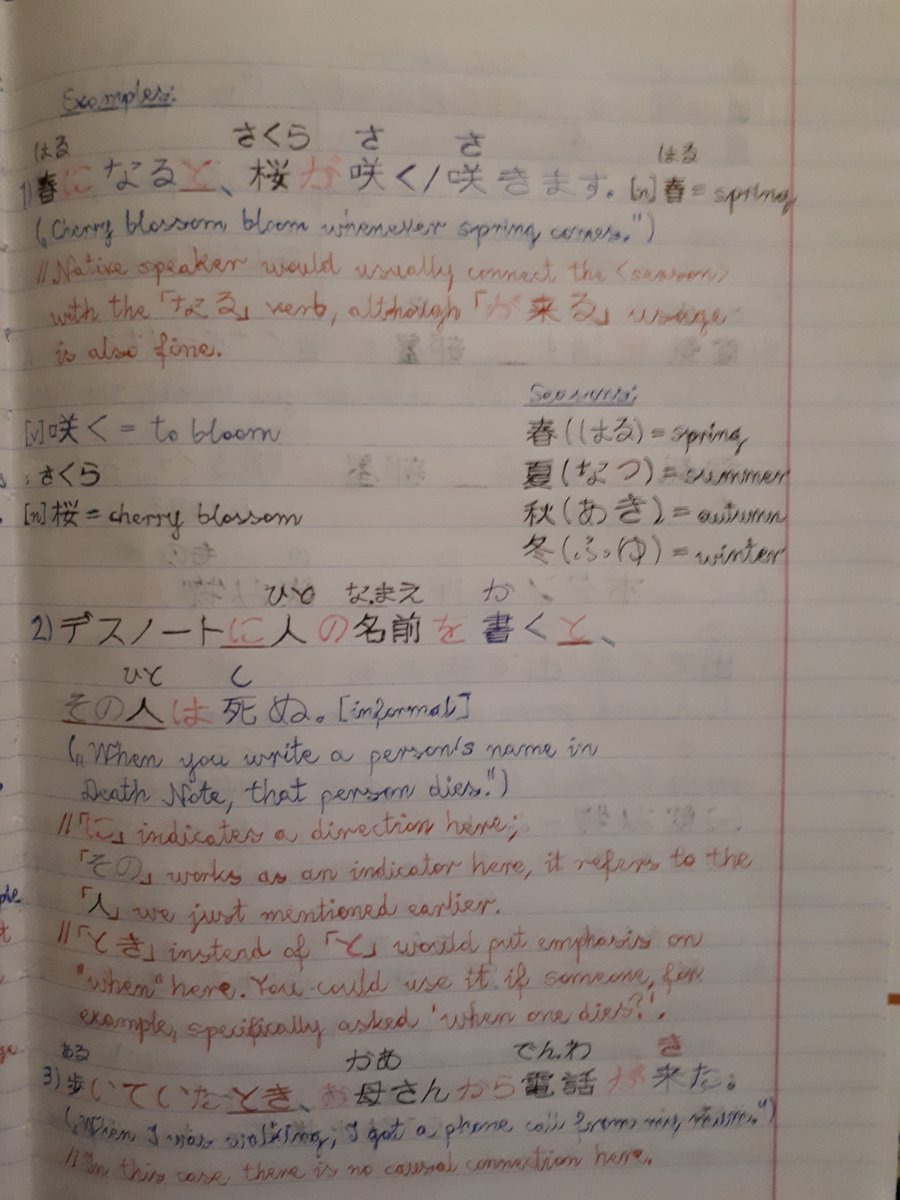 Examples:
はる さくら さ さ はる
1) 春になると、桜が咲く/咲きます。 [n] 春 = spring
(„Cherry blossom bloom whenever spring comes.")
// Native speaker would usually connect the <season>
with the 「なる」 verb, although 「が来る」 usage
is also fine.
[v] 咲く = to bloom
さくら
[n] 桜 = cherry blossom
Seasons:
春(はる) = spring
夏(なつ) = summer
秋(あき) = autumn
冬(ふゆ) = winter
ひと なまえ か
2) デスノートに人の名前を書くと、
ひと し
その人は死ぬ。[informal]
(„When you write a person's name in
Death Note, that person dies.")
// 「に」 indicates a direction here;
「その」 works as an indicator here, it refers to the
「人」 we just mentioned earlier.
// 「とき」 instead of 「と」 would put emphasis on
"when" here. You could use it if someone, for
example, specifically asked 'when one dies?'.
ある かあ でんわ き
3) 歩いていたとき、お母さんから電話が来た。
(„When I was walking, I got a phone call from my mum.")
// In this case there is no causal connection here.